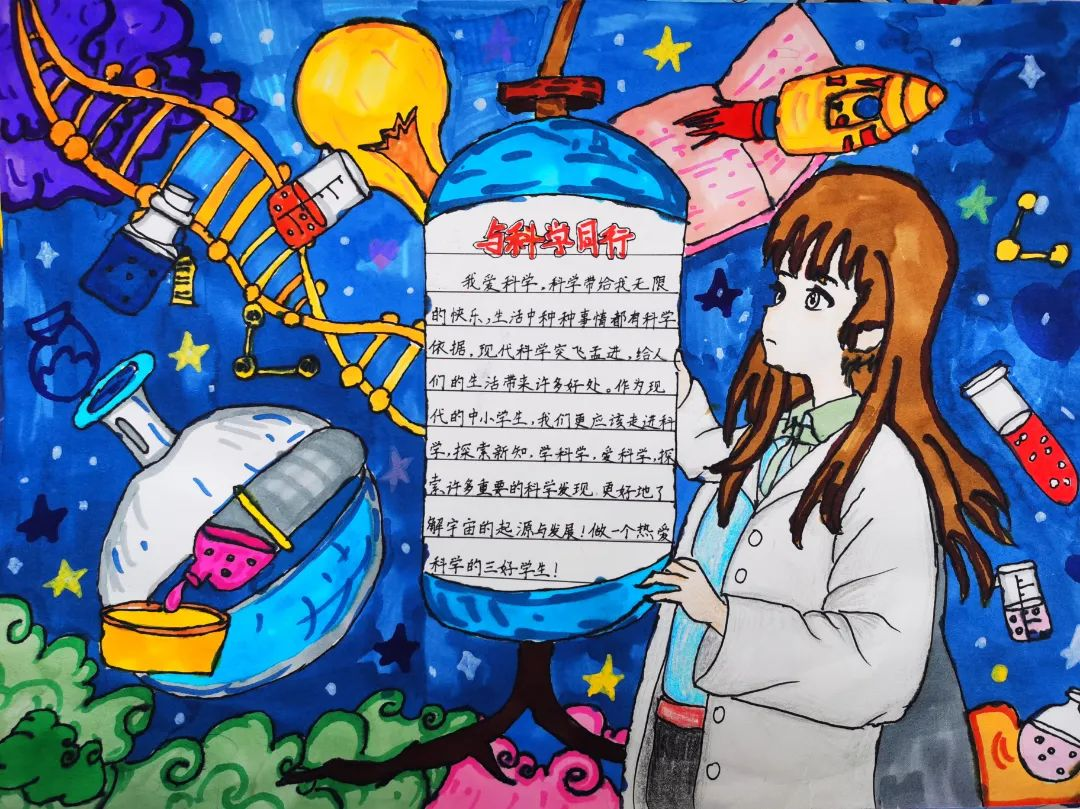 与科学同行
我爱科学,科学带给我无限
的快乐,生活中种种事情都有科学
依据,现代科学突飞孟进,给人
们的生活带来许多好处。作为现
代的中小学生,我们更应该走进科
学,探索新知,学科学,爱科学,探
索许多重要的科学发现,更好地了
解宇宙的起源与发展!做一个热爱
科学的三好学生!